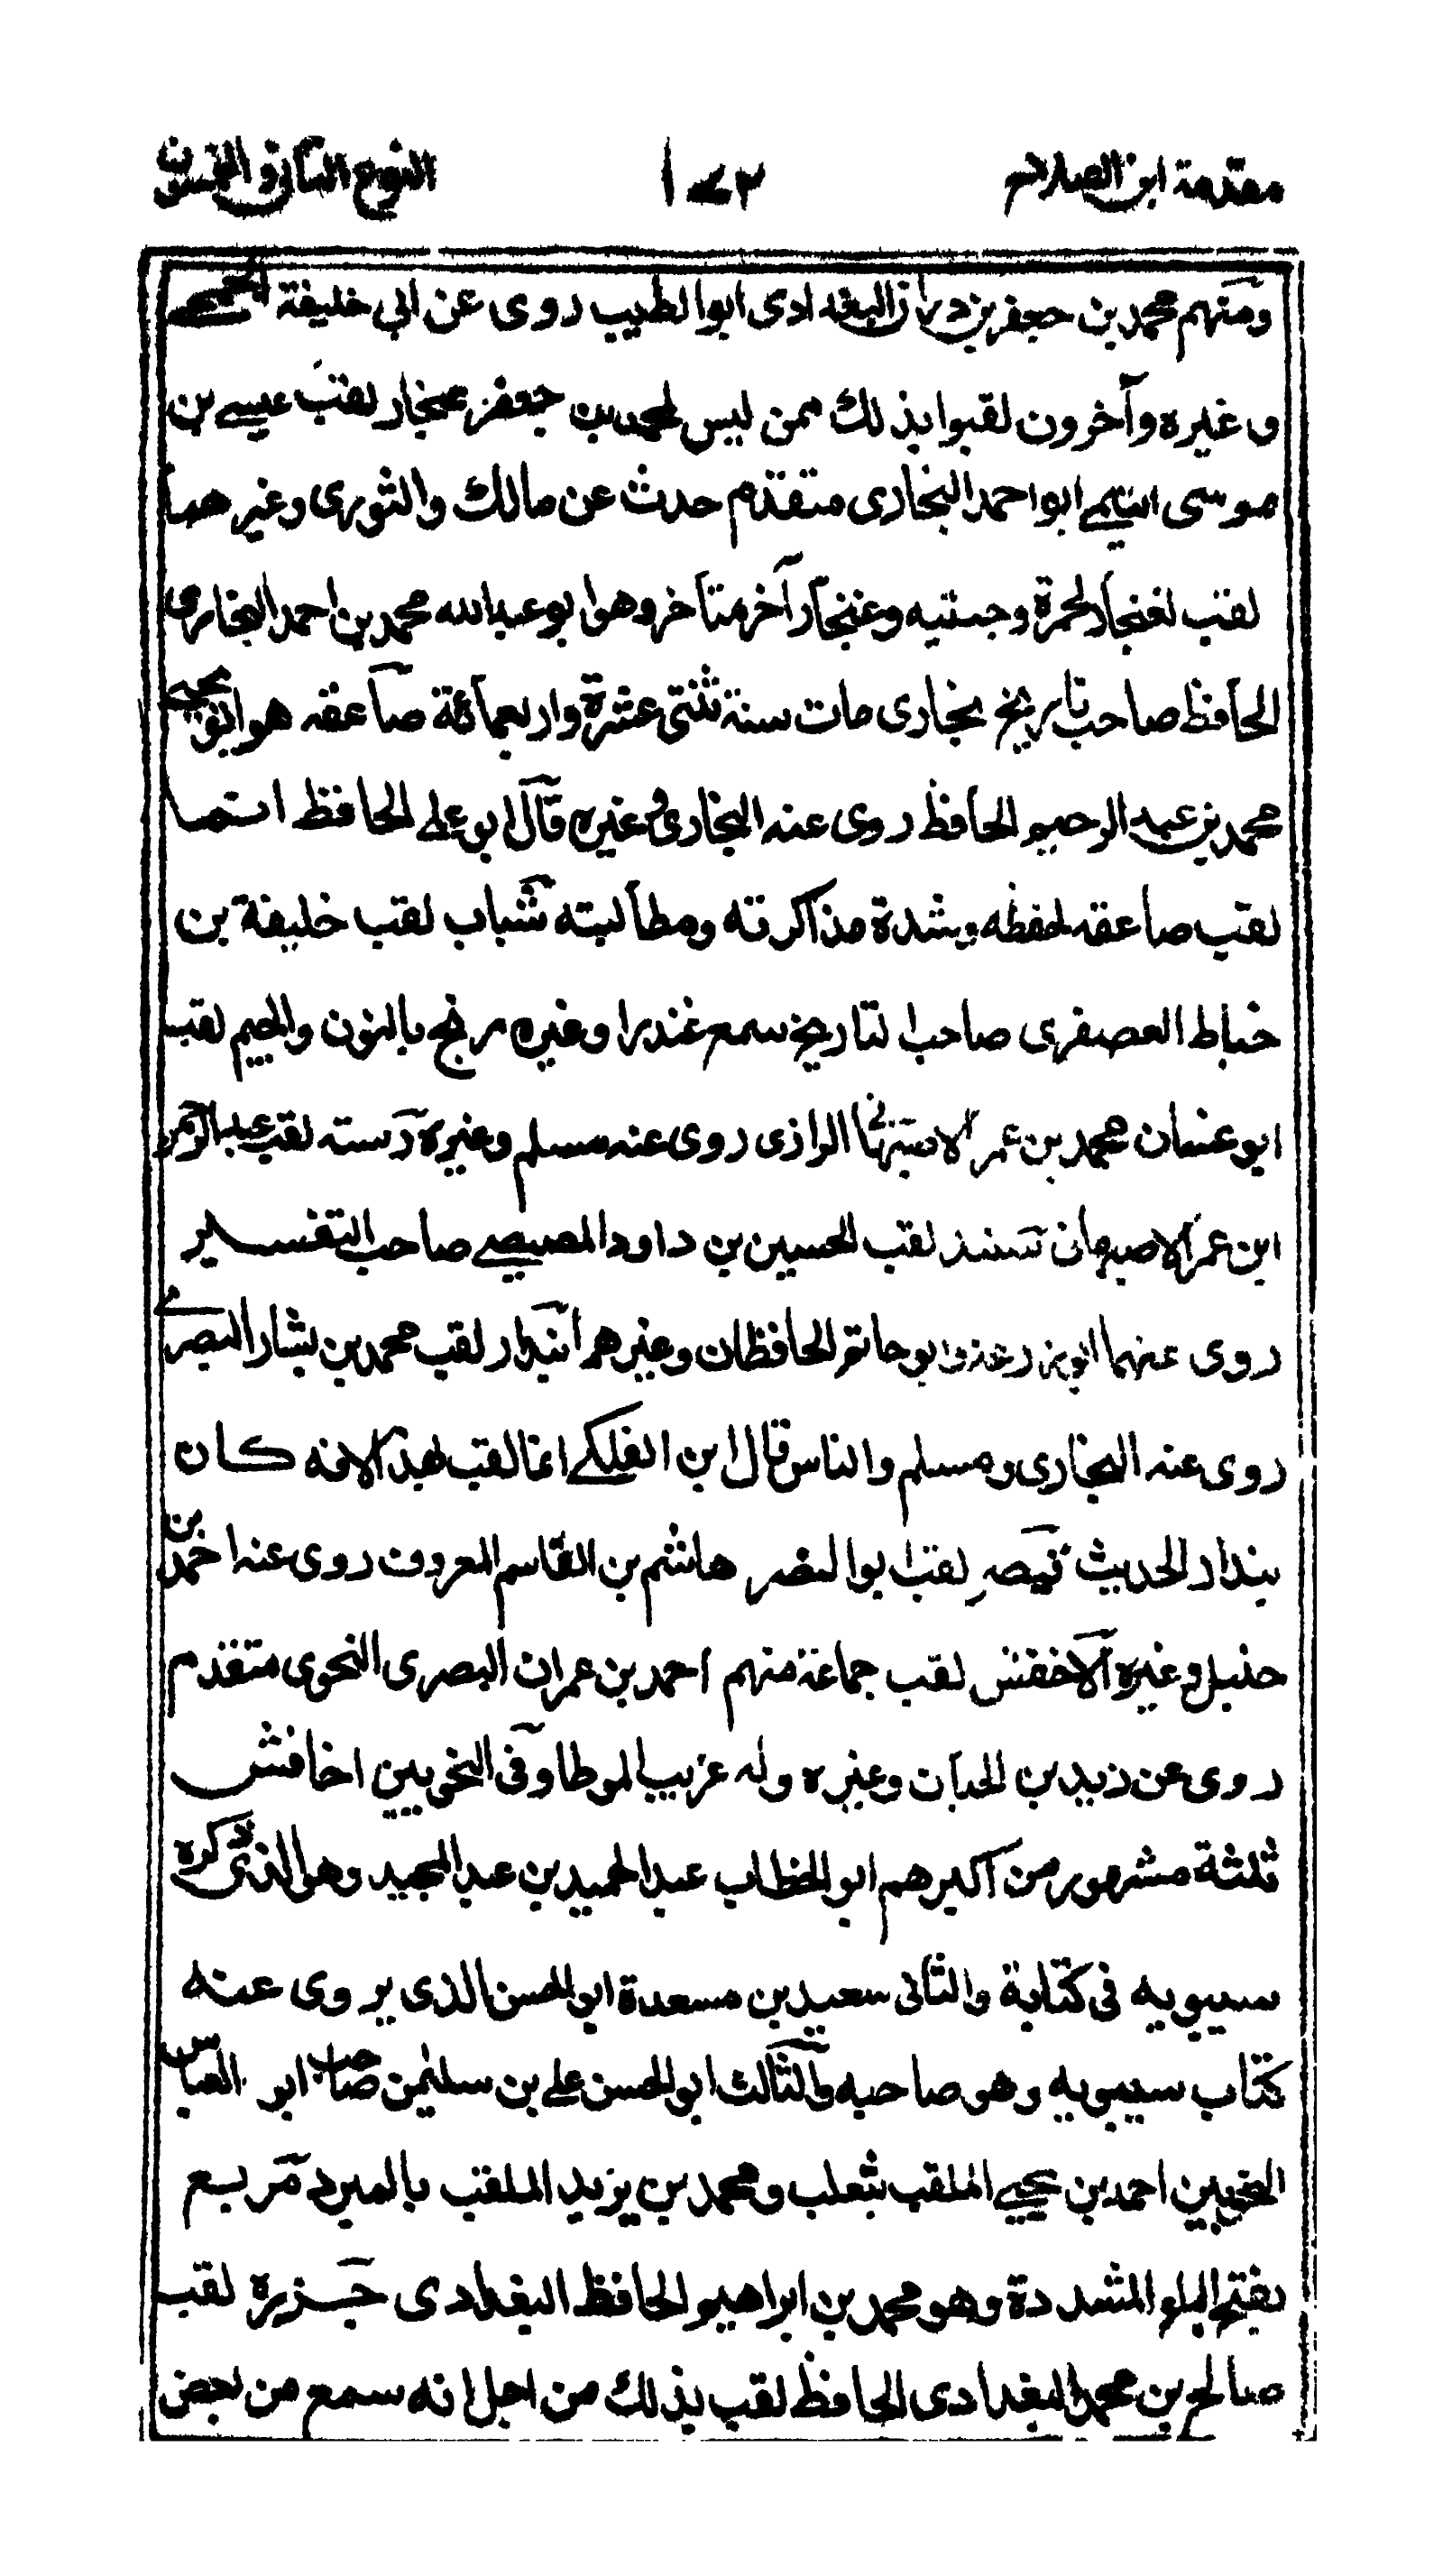 مقدمة ابن الصلاح ١٧٣ النوع الثانى والخمسون
ومنهم محمد بن جعفر بن دران البغدادى ابوا لطيب روى عن ابي خليفة الجمحے
وغيره وآخرون لقبوا بذلك ممن ليس لمحمد بن جعفر غنجار لقب عيسے بن
موسى التيمے ابوا حمد البخارى متقدم حدث عن مالك والثورى وغيرهما
لقب لغنجار لحمرة وجنتيه وغنجار آخر متاخر وهو ابو عبدالله محمد بن احمد البخارى
الحافظ صاحب تاريخ بخارى مات سنة ثنتى عشرة واربعمائة صاعقه هو ابو يحيے
محمد بن عبد الرحيم الحافظ روى عنه البخارى وغيره قال ابو على الحافظ انما
لقب صاعقه لحفظه وشدة مذاكرته ومطالبته شباب لقب خليفة بن
خياط العصفرى صاحب التاريخ سمع غندرا وغيره زنيج بالنون والجيم لقب
ابو غسان محمد بن عمر الاصبهانى الرازى روى عنه مسلم وغيره رسته لقب عبدالرحمن
ابن عمر الاصبهانى سنيد لقب الحسين بن داود المصيصے صاحب التفسير
روى عنهما ابو زرعة وابو حاتم الحافظان وغيرهم بندار لقب محمد بن بشار البصرے
روى عنه البخارى ومسلم والناس قال ابن الفلكے انما لقب بهذا لانه كان
بندار الحديث قيصر لقب ابو النضر هاشم بن القاسم المعروف روى عنه احمد بن
حنبل وغيره الاخفش لقب جماعة منهم احمد بن عمران البصرى النحوى متقدم
روى عن زيد بن الحباب وغيره وله غريب الموطا وفى النحويين اخافش
ثلثة مشهورمن اكبرهم ابو الخطاب عبد الحميد بن عبد المجيد وهو الذى ذكره
سيبويه فى كتابة والثانى سعيد بن مسعدة ابو الحسن الذى يروى عنه
كتاب سيبويه وهو صاحبه والثالث ابو الحسن على بن سليمن صاحب ابر العباس
النحويين احمد بن يحيے الملقب بثعلب ومحمد بن يزيد الملقب بالمبرد مربع
بفتح الباء المشددة وهو محمد بن ابراهيم الحافظ البغدادى جزرة لقب
صالح بن محمد البغدادى الحافظ لقب بذلك من اجل انه سمع من بعض